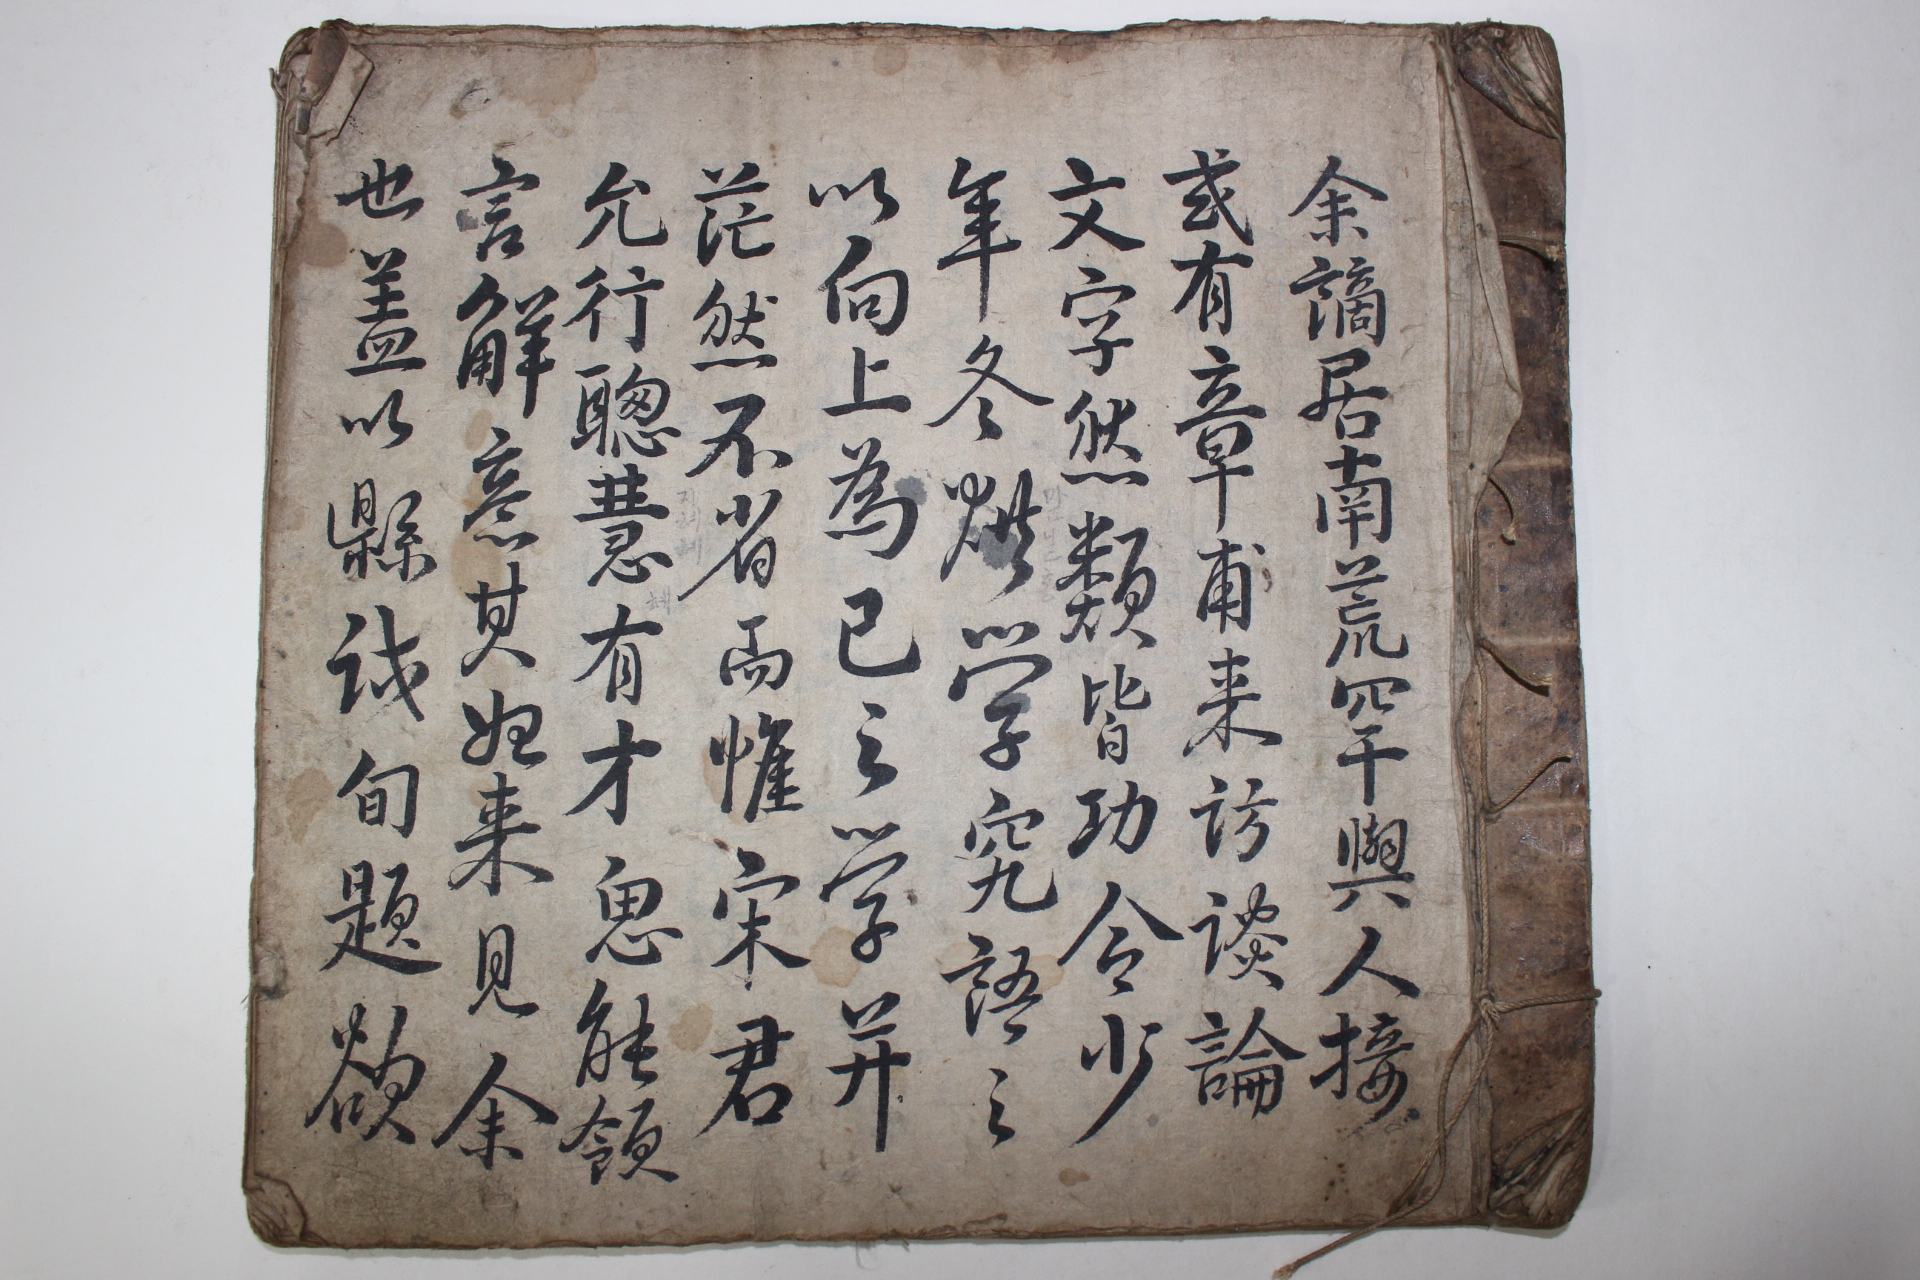 余謫居南荒罕與人接
或有章甫来訪談論
文字然類皆功令少
年冬烘学究語之
以向上為己之学并
茫然不省而惟宋君
允行聰慧有才思能領
言觧意其始来見余
也盖以縣試旬題欲